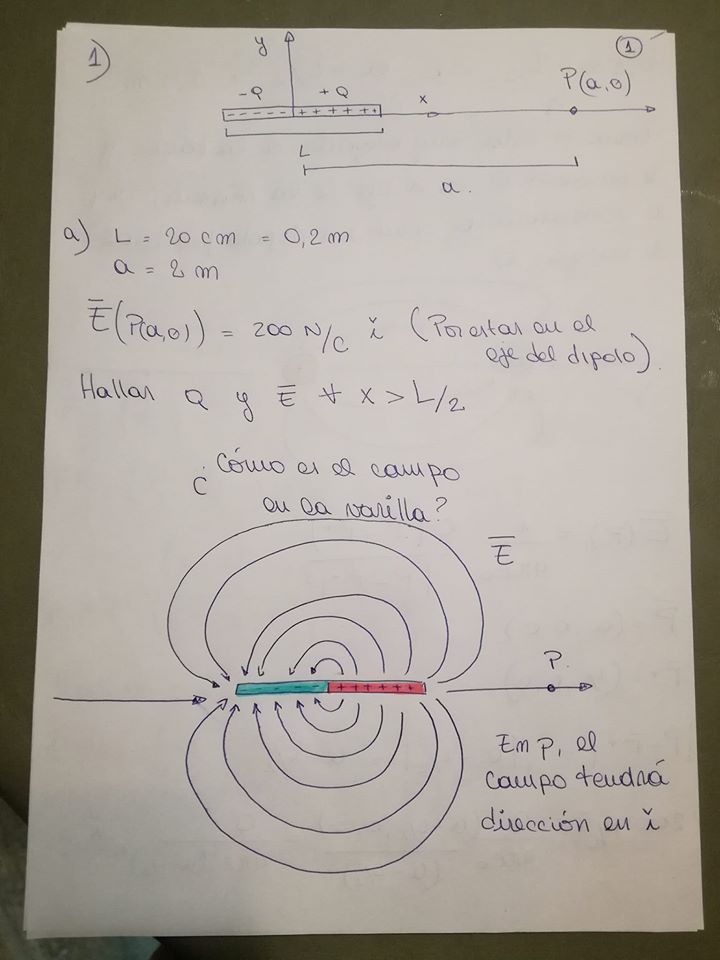 1)
1
y
-Q +Q
- - - - - + + + + + + +
x
P(a,0)
L
a.
a) L = 20 cm = 0,2 m
a = 2 m
E̅(P(a,0)) = 200 N/C ǐ (Por estar en el
eje del dipolo).
Hallar Q y E̅ ∀ x > L/2
¿Cómo es el campo
en la varilla?
E̅
- - + + + + + +
P.
En p, el
campo tendrá
dirección en ǐ